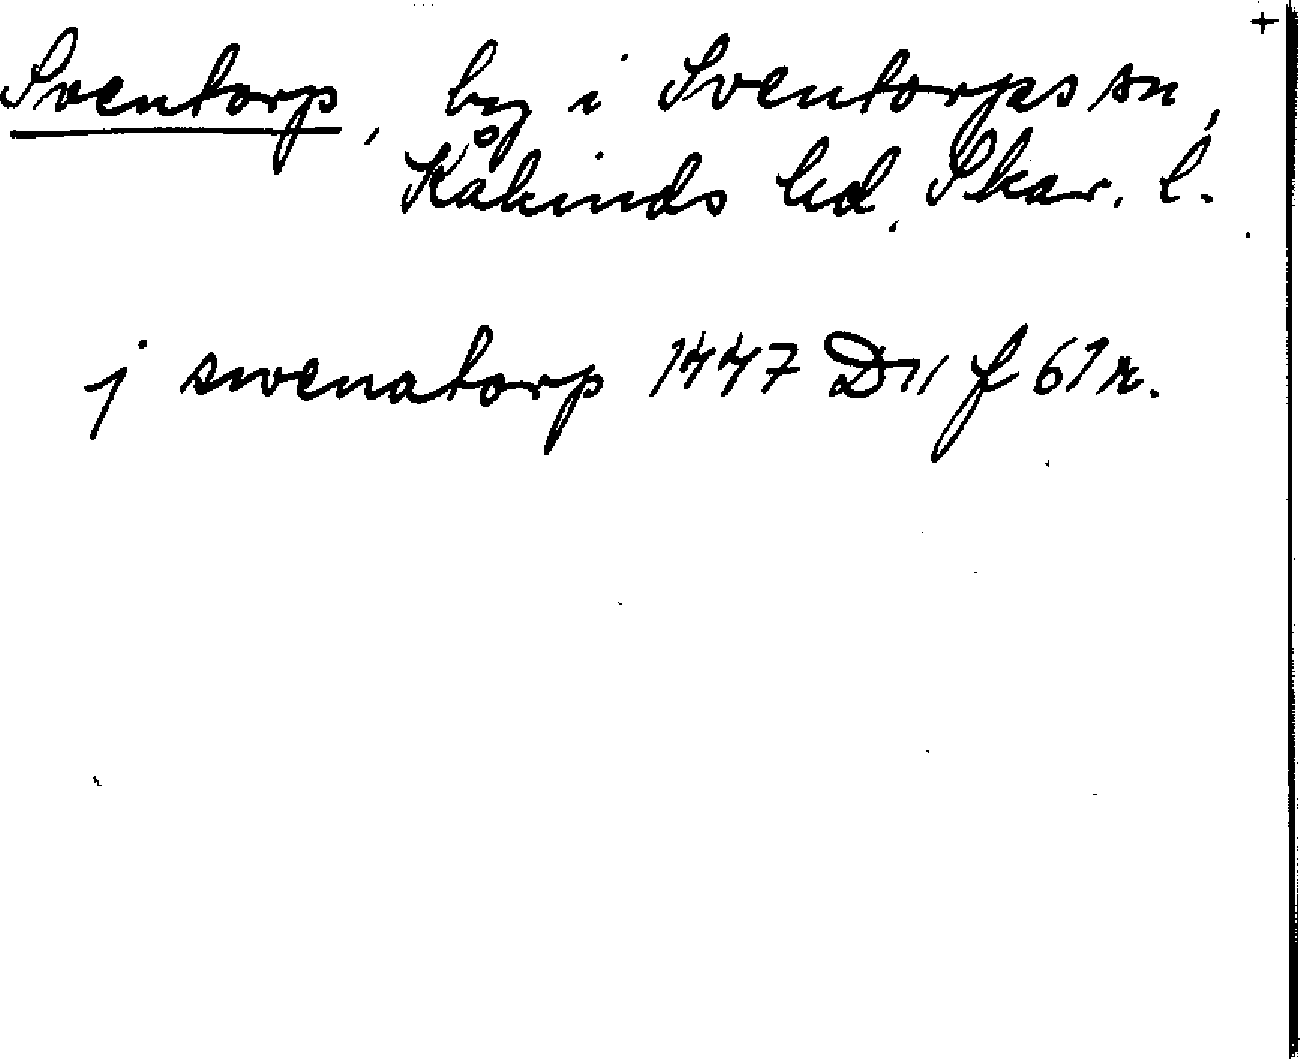 +
Sventorp, by i Sventorps sn,
Kåkinds hd, Skar. l.
j swenatorp 1447 D11 f 61 r.